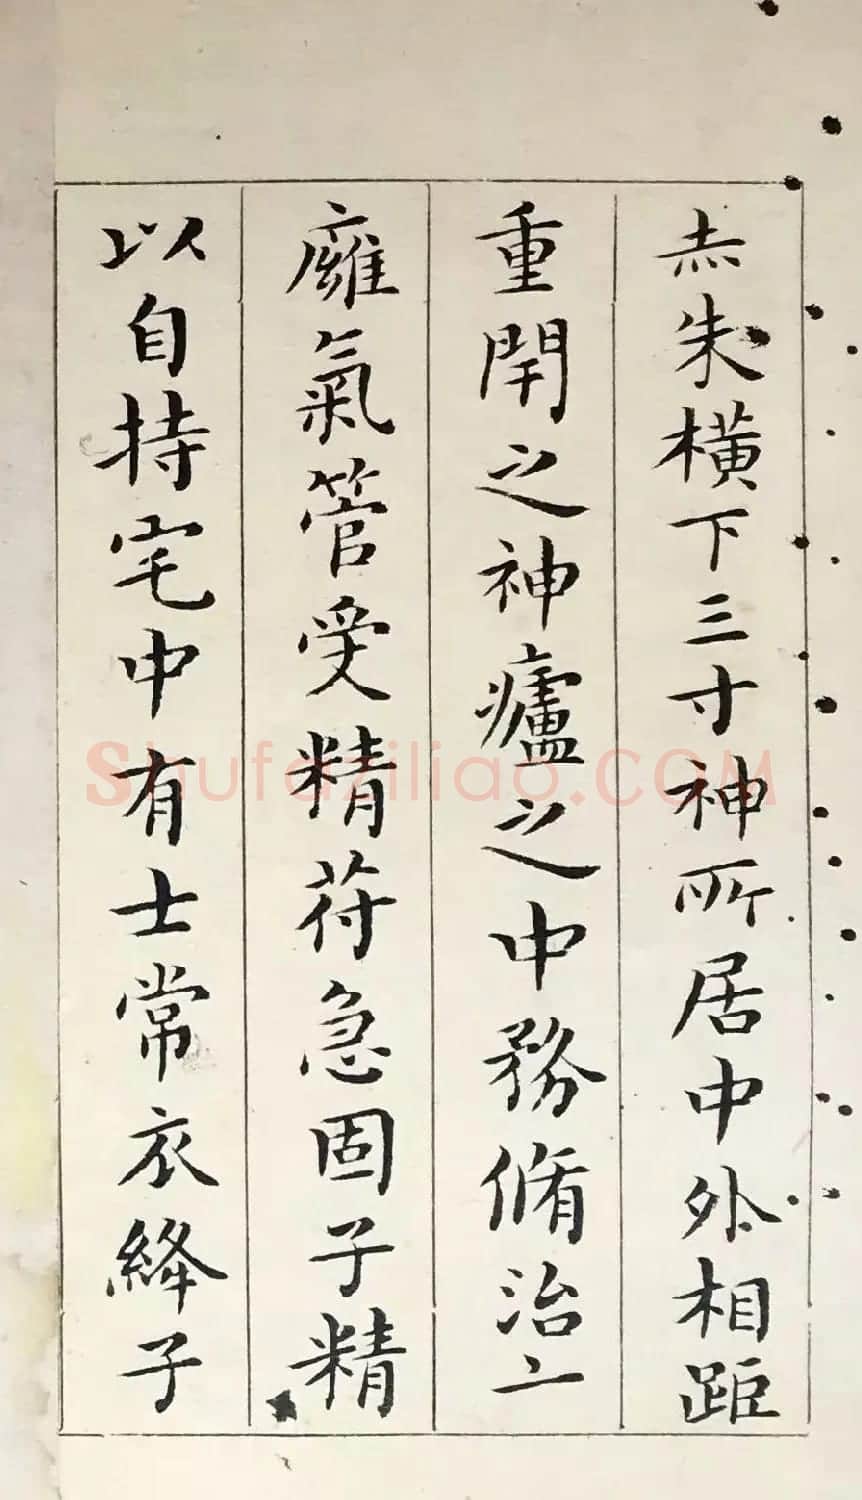 赤朱橫下三寸神所居中外相距
重閇之神廬之中務脩治二
廱氣管受精苻急固子精
以自持宅中有士常衣絳子
Shufaziliao.COM